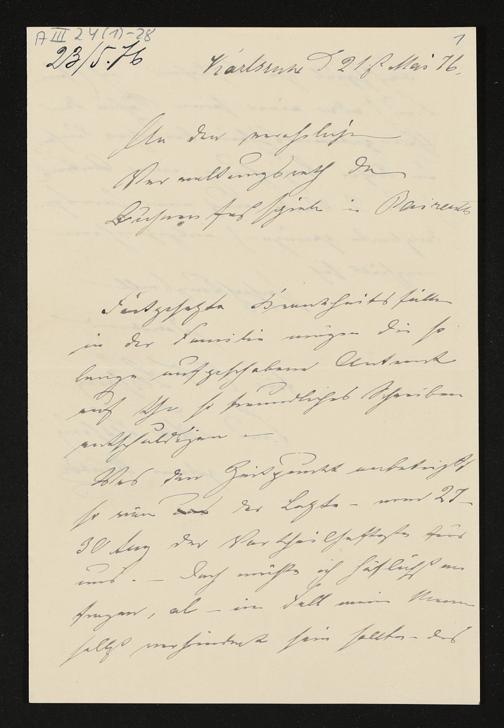 A III 24 (1)-28
1
23/5. 76
Karlsruhe d 21t Mai 76.
An den verehrlichen
Verwaltungsrath der
Bühnenfestspiele in Baireuth
Fortgesetzte Krankheitsfälle
in der Familie mögen die so
lange aufgeschobene Antwort
auf Ihr so freundliches Schreiben
entschuldigen –
Was den Zeitpunkt anbetrifft
so wäre der Letzte – vom 27–
30 Aug der Vortheilhafteste für
uns. – Doch möchte ich höflichst an
fragen, ob – im Fall mein Mann
selbst verhindert sein sollte – das